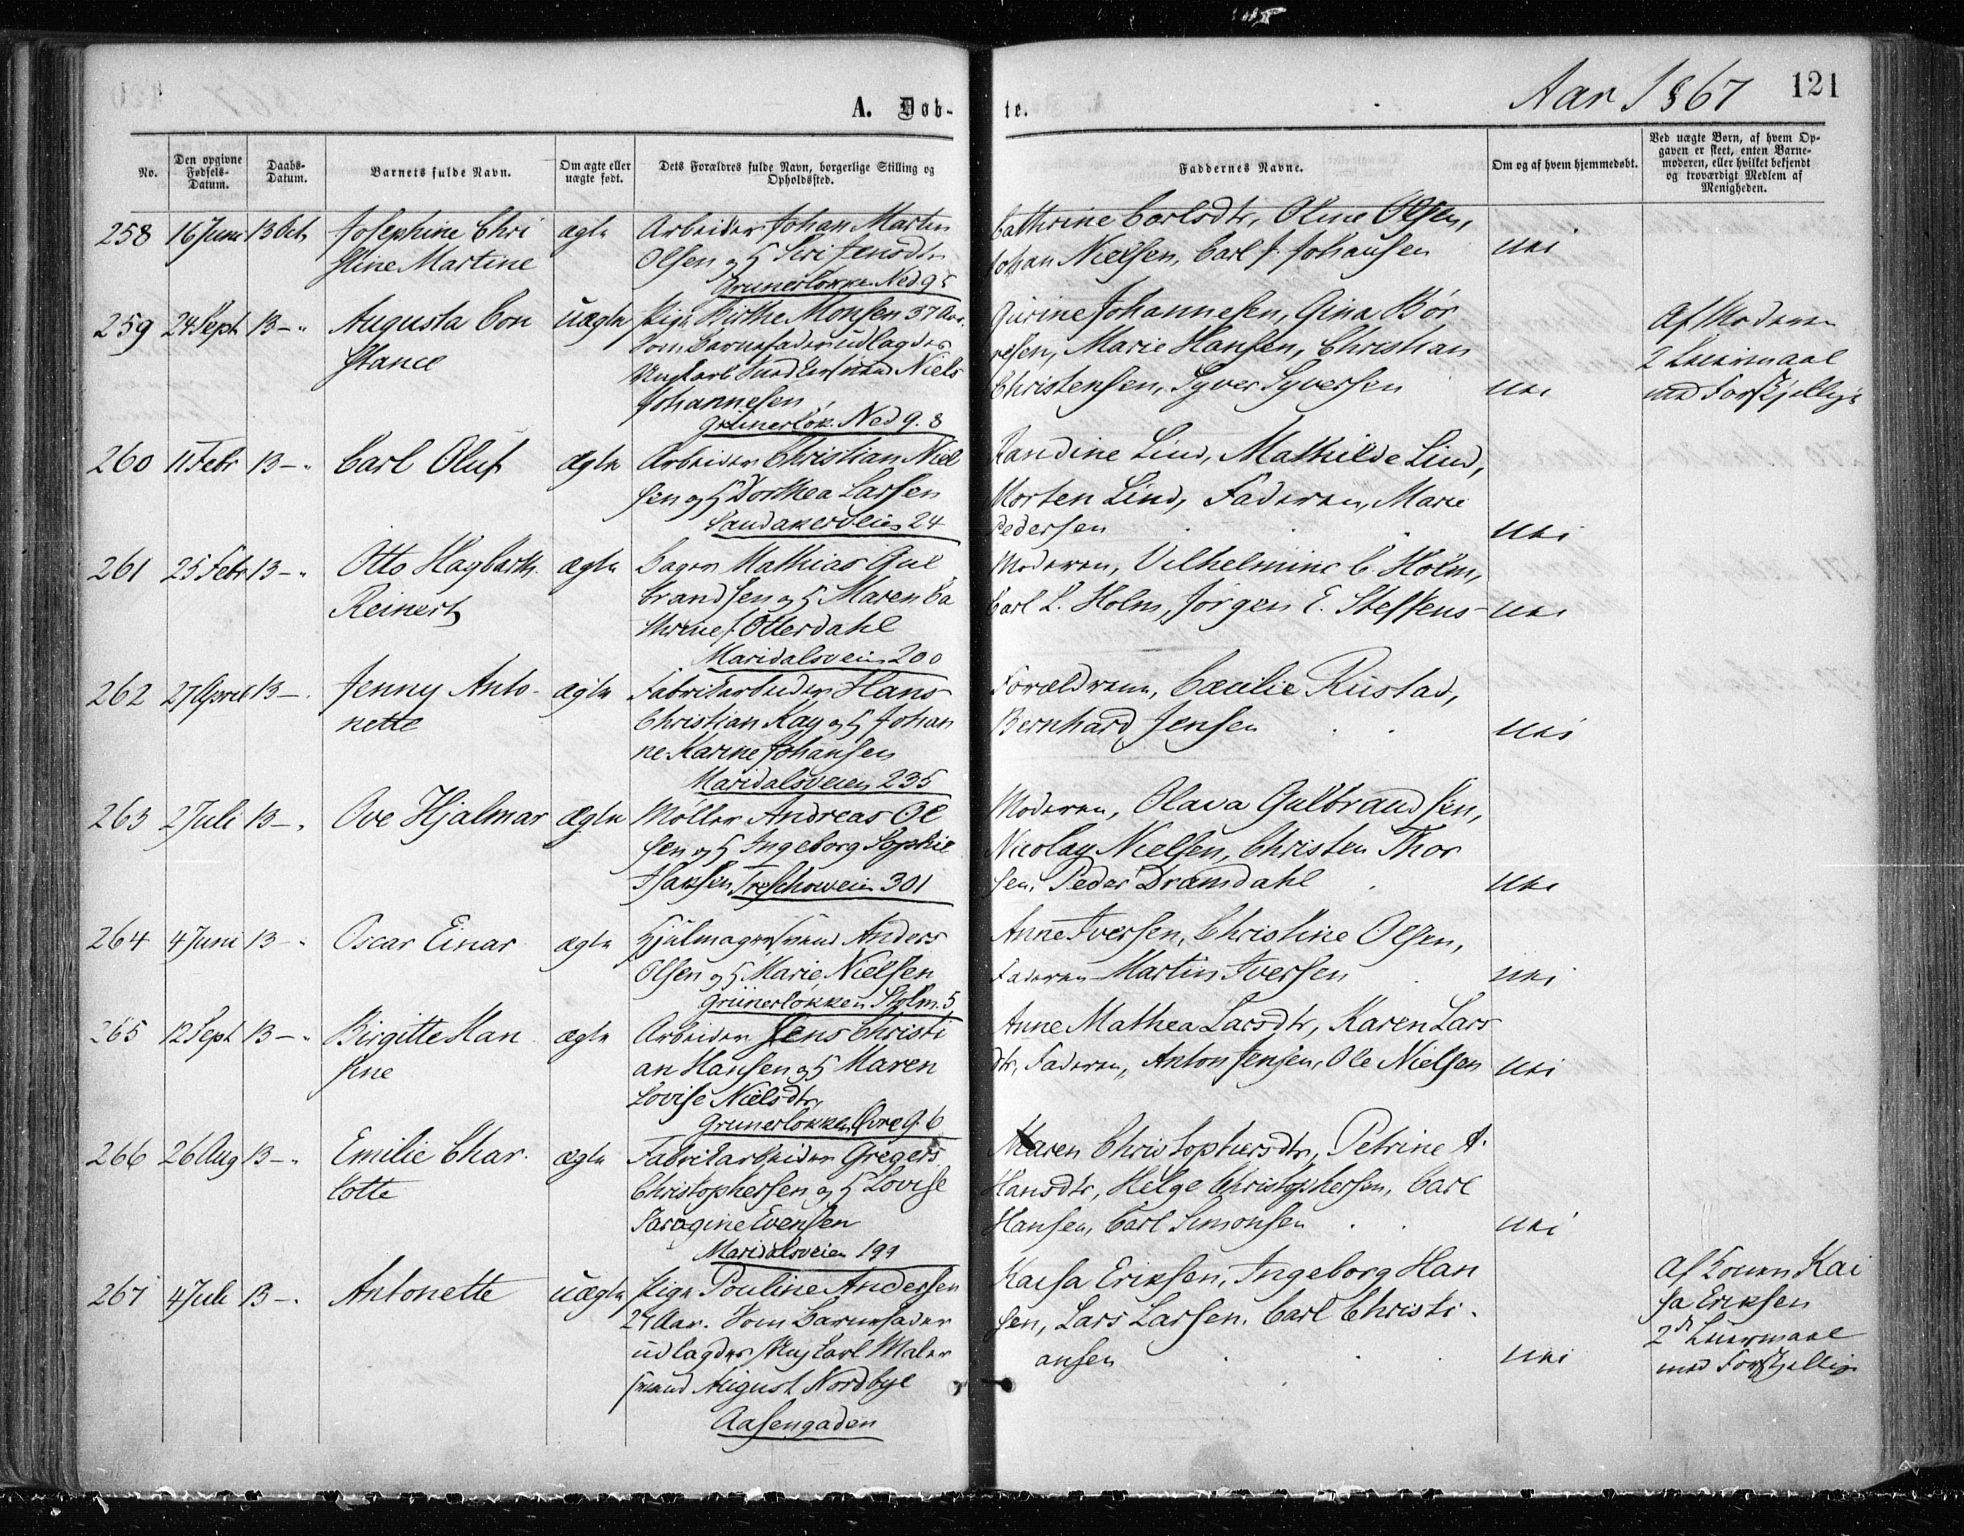 A. Døb-
te.
Aar 1867
121
No.
Den opgivne Fødsels-Datum.
Daabs-Datum.
Barnets fulde Navn.
Om ægte eller uægte født.
Dets Forældres fulde Navn, borgerlige Stilling og Opholdssted.
Faddernes Navne.
Om og af hvem hjemmedøbt.
Ved uægte Børn, af hvem Op-
gaven er skeet, enten Barne-
moderen, eller hvilket bekjendt
og troværdigt Medlem af
Menigheden.
258 16 Juni 13 Oct Josephine Chri ægte Arbeider Johan Martin
stine Martine Olsen og H Siri Jensdtr
Grunerløkken Ned 9
Cathrine Carlsdtr, Oline Olsen,
Johan Nielsen, Carl J. Johansen nei
259 24 Sept 13 – " Augusta Con uægte Pige Birthe Monsen 37 Aar.
stance Som Barnefader udlagdes
Ungkarl Niels
Johannesen,
Grünerløk. Ned 9. 8
Gurine Johannesen, Gina Bør
resen, Marie Hansen, Christian
Christensen, Syver Syversen nei
Af Moderen
2 Leiermaal
med forskjellige
260 11 Febr 13 – " Carl Oluf ægte Arbeider Christian Niel
sen og H Dorthea Larsen
Sandakerveien 24
Randine Lind, Mathilde Lind,
Morten Lind, Faderen, Marie
Pedersen nei
261 25 Febr 13 – " Otto Hagbarth ægte Bager Mathias Gul
Reinert brandsen og H Maren Ca
thrine J. Otterdahl
Maridalsveien 200
Moderen, Vilhelmine C. Holm,
Carl L. Holm, Jørgen E. Steffens – nei
262 27 April 13 – . Jenny Anto- ægte Fabrikarbeider Hans
nette Christian Kay og H Johan
ne Karine Johansen
Maridalsveien 235
Forældrene, Cæcilie Rustad,
Bernhard Jensen nei
263 2 Juli 13 – . Ove Hjalmar ægte Møller Andreas Ol
sen og H Ingeborg Sophie
Isaksen Treschowveien 301
Moderen, Olava Gulbrandsen,
Nicolay Nielsen, Christen Thor
sen, Peder Dramdahl nei
264 4 Juni 13 – " Oscar Einar ægte Hjulmagersvend Anders
Olsen og H Marie Nielsen
Grünerløkken Stolm. 5
Anne Iversen, Christine Olsen,
Faderen Martin Iversen nei
265 12 Sept 13 – " Birgitte Han ægte Arbeider Jens Christi
sine an Hansen og H Maren
Lovise Nielsdtr,
Grunerløkken Øvre 9. 6
Anne Mathea Larsdtr, Karen Lars
dtr, Faderen, Anton Jensen, Ole Nielsen nei
266 26 Aug 13 – " Emilie Char ægte Fabrikarbeider Gregers
lotte Christophersen og H Lovise
Saragine Evensen
Maridalsveien 199
Maren Christophersdtr, Petrine A.
Hansdtr, Helge Christophersen, Carl
Hansen, Carl Simonsen nei
267 4 Juli 13 – . Antonette uægte Pige Pouline Andersen
24 Aar. Som Barnefader
udlagdes Ungkarl Maler
svend August Nordbye
Aasengaden
Kaisa Eriksen, Ingeborg Han
sen, Lars Larsen, Carl Christi
ansen nei
Af Konen Kai
sa Eriksen
2det Leiermaal
med forskjellige